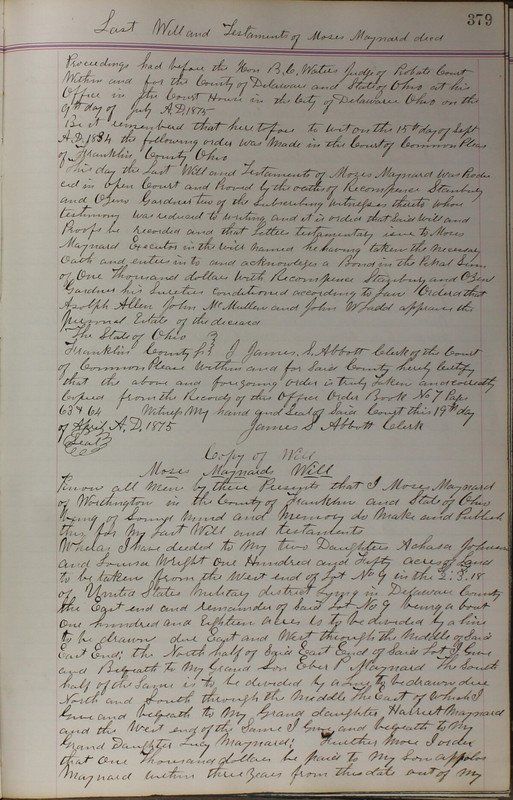 379
Last Will and Testaments of Moses Maynard decd
Proceedings had before the Hon B.C. Waters Judge of Probate Court
Within and for the County of Delaware and State of Ohio at his
Office in the Court House in the City of Delaware Ohio on the
9th day of July A.D. 1875
Be it remembered that heretofore to wit on the 15th day of Sept
A.D. 1834 the following order was Made in the Court of Common Pleas
of Franklin County Ohio
This day the Last Will and Testaments of Mozes Maynard was Produ
ced in Open Court and Proved by the oaths of Recompense Stanbury
and Gardner two of the Subscribing Witnesses thereto whose
testimony was reduced to writing and it is ordered that Said Will and
Proofs be recorded and that Letters testamentary issue to Moses
Maynard Executor in the will named he having taken the Necessary
Oath and enters into and acknowledges a Bond in the Penal Sum
of One thousand dollars With Recompense Stanbury and
Gardner his Sureties Conditioned according to Law Orderd that
Asolph Allen John McMullen and John W Ladd appraise the
Personal Estate of the deceased
The State of Ohio
Franklin County SS I James S. Abbott Clerk of the Court
of Common Pleas Within and for Said County hereby Certify
that the above and foregoing order is truly taken and correctly
Copied from the Records of this Office Order Book No 7 Page
63 & 64 Witness My hand and Seal of Said Court this 19th day
of April A.D. 1875 James S Abbott Clerk
Seal
Copy of Will
Moses Maynards Will
Know all Men by these Presents that I Moses Maynard
of Worthington in the County of Franklin and State of Ohio
being of Sound Mind and Memory do Make and Publish
this for My Last Will and testaments
Whereas I have deeded to My two Daughters Johnson
and Louisa Wright One Hundred and Fifty acres of Land
to be taken from the West end of Lot No 9 in the 18
of United States Military district Lying in Delaware County
the East end and remainder of Said Lot No 9 being about
One hundred and Eighteen Acres is to be divided by a line
to be drawn due East and West through the Middle of Said
East End; the North half of Said East End of Said Lot I Give
and Bequeath to My Grand Son Eber P Maynard The South
half of the Same is to be divided by a Line to be drawn due
North and South through the Middle The East of Which I
Give and bequeath to My Grand daughter Harriet Maynard
and the West end of the Same I Give and bequeath to My
Grand Daughter Lucy Maynard; Further More I order
that One thousand dollars be paid to My Son
Maynard within three Years from this date out of My